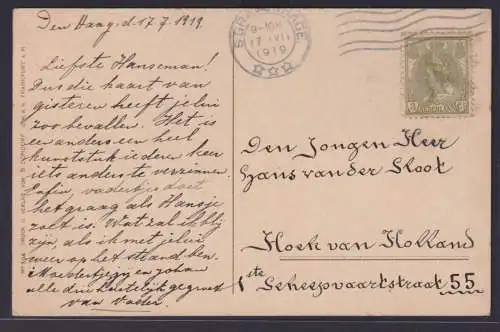 Den Haag. d. 17. 7. 1919.
Liefste Hanseman!
Dus die kaart van
gisteren heeft jelui
zoo bevallen. Het is
anders een heel
kunststuk iederen keer
iets anders te verzinnen.
Enfin, vadertje doet
het graag als Hansje
zoet is. Wat zal ik blij
zijn, als ik met jelui
weer op het strand ben.
Moedertje en
alle drie hartelijk gegroet
van Vader.
S GRAVENHAGE
17 VII
1919
NEDERLAND
Den Jongen Heer
Hans van der Sloot
Hoek van Holland
1ste Scheepvaartstraat 55